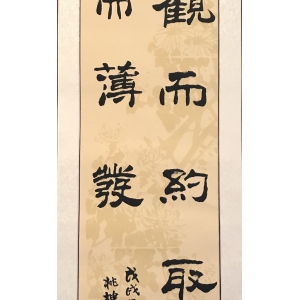 觀而約取
而薄發
戊戌